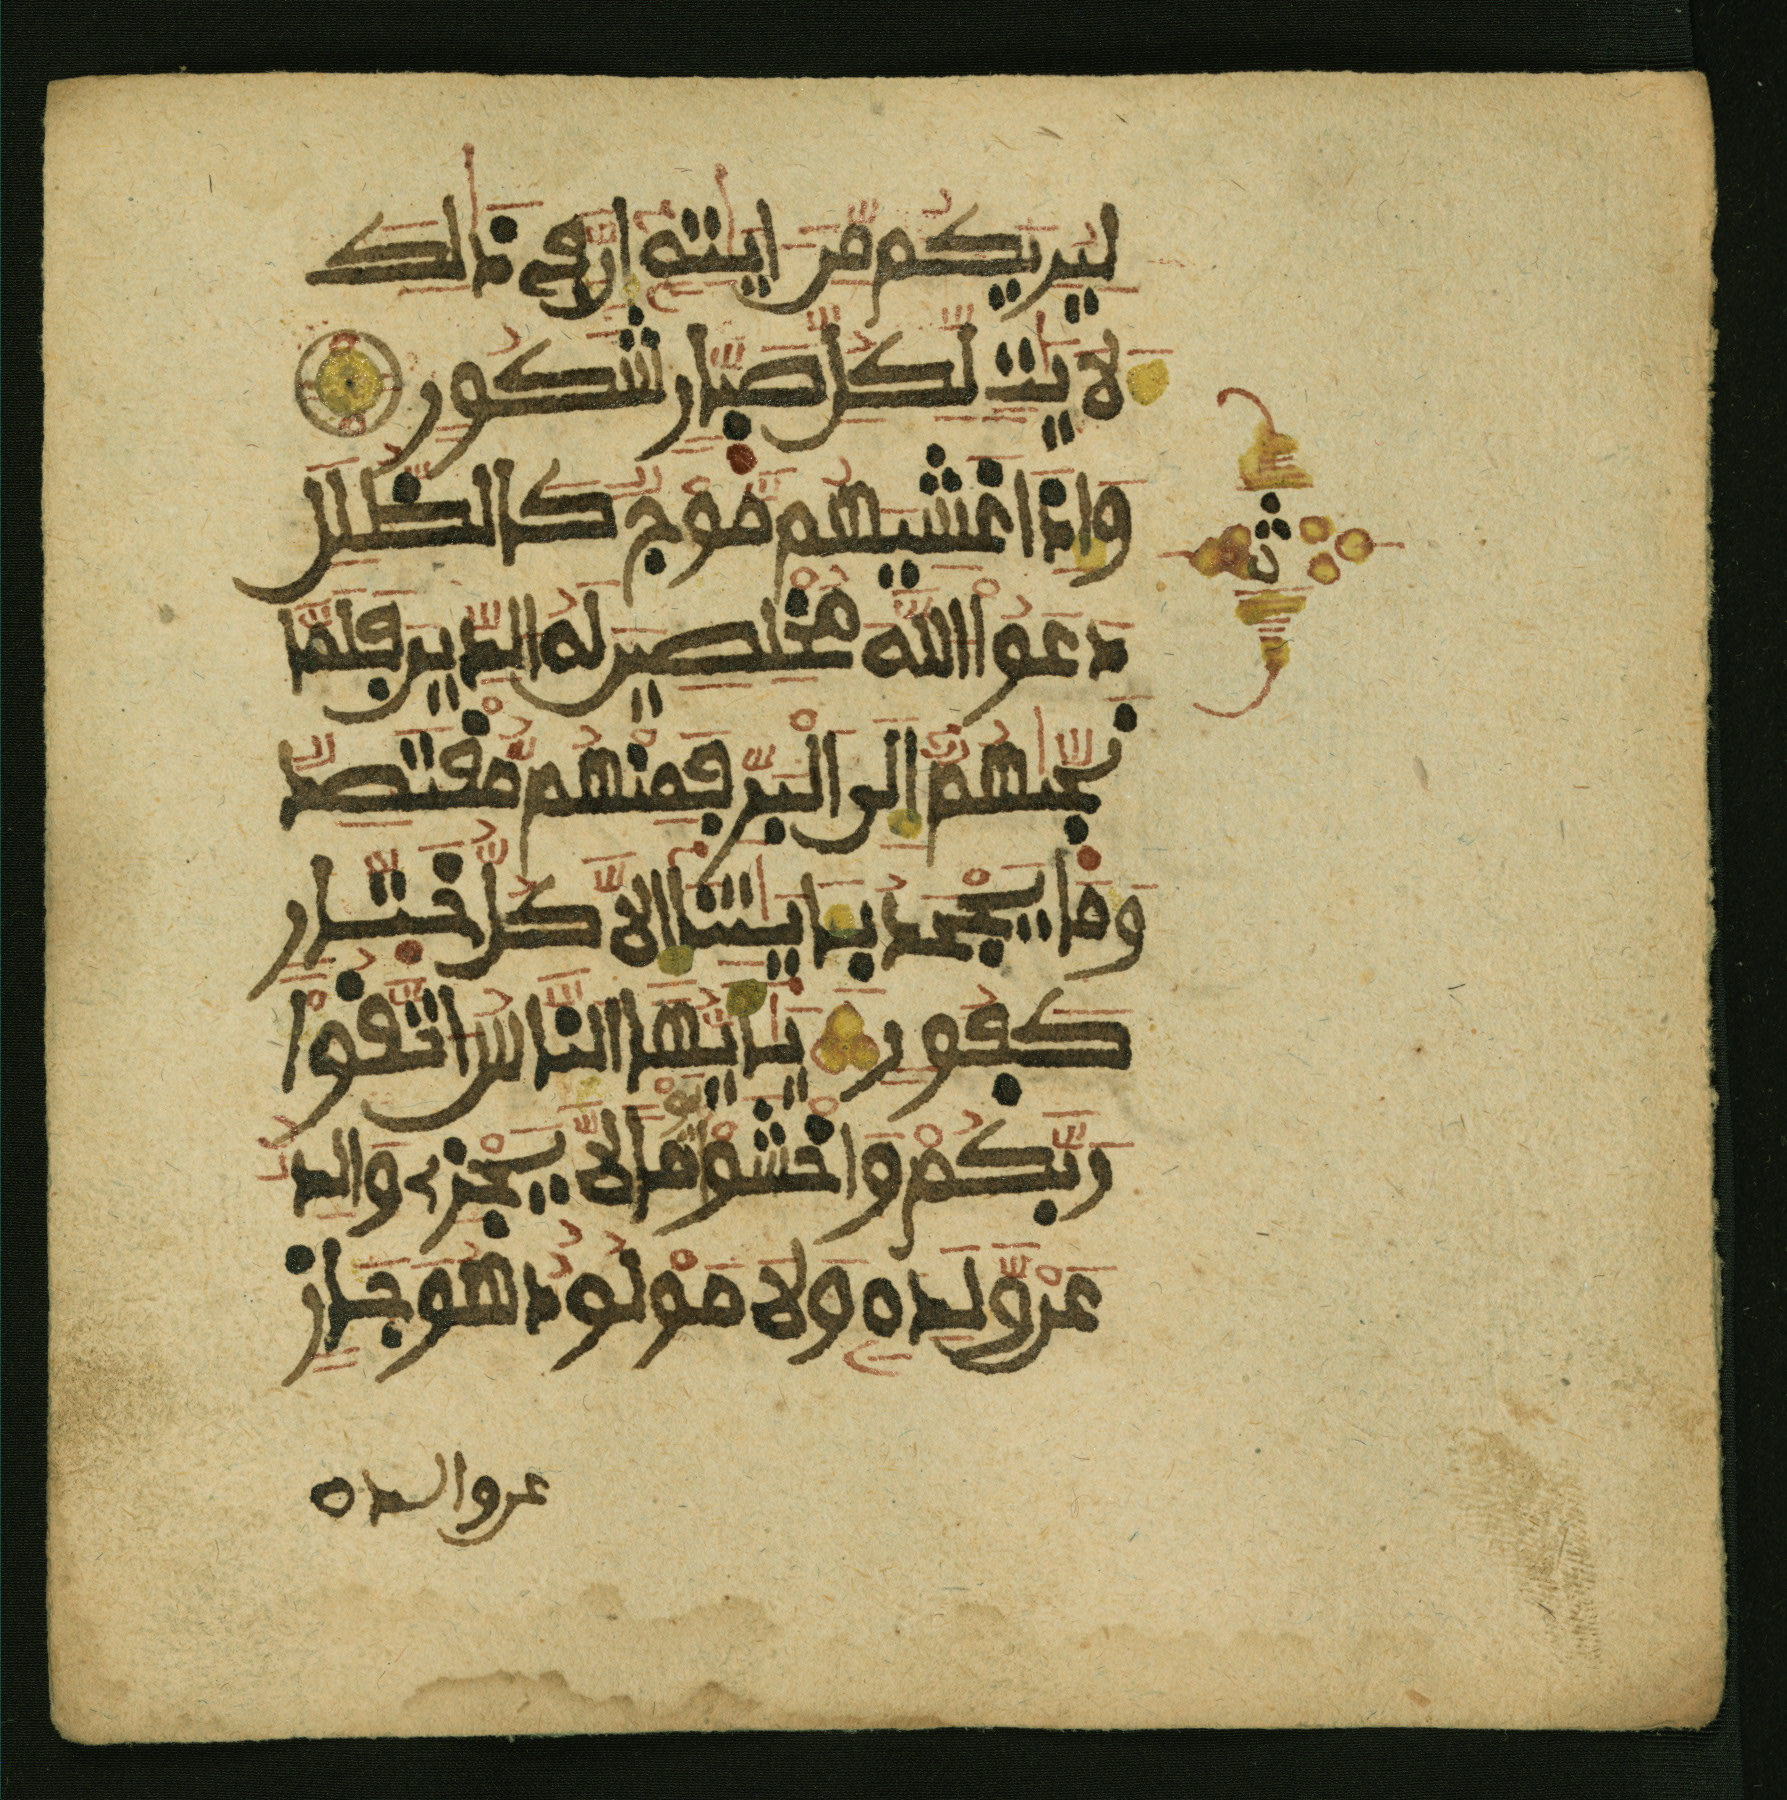 لِيُرِيَكُم مِّنَ ايَٰتِهِۦٓ إِنَّ فِي ذَٰلِكَ
لَأٓيَٰتٖ لِّكُلِّ صَبّٖارٖ شَكُورٖ
وَإِذَا غَشِيَهُم مَّوۡجٞ كَالظُّلَلِ
دَعَوُاْ اللَّهَ مُخۡلِصِينَ لَهُ الدِّينَ فَلَمَّا
نَجَّىٰهُمُۥٓ إِلَى الۡبَرِّ فَمِنۡهُم مُّقۡتَصِدٞ
وَمَا يَجۡحَدُ بِـَٔايَٰتِنَآ إِلَّا كُلُّ خَتّٖارٖ
كَفُورٖ يَٰٓأَيُّهَا النَّاسُ اتَّقُواْ
رَبَّكُمۡ وَاخۡشَوۡاْ يَوۡمٗا لَّا يَجۡزِي وَالِدٌ
عَنۡ وَّلَدِهِۦ وَلَا مَوۡلُودٌ هُوَ جَازٍ
ث
عن والده